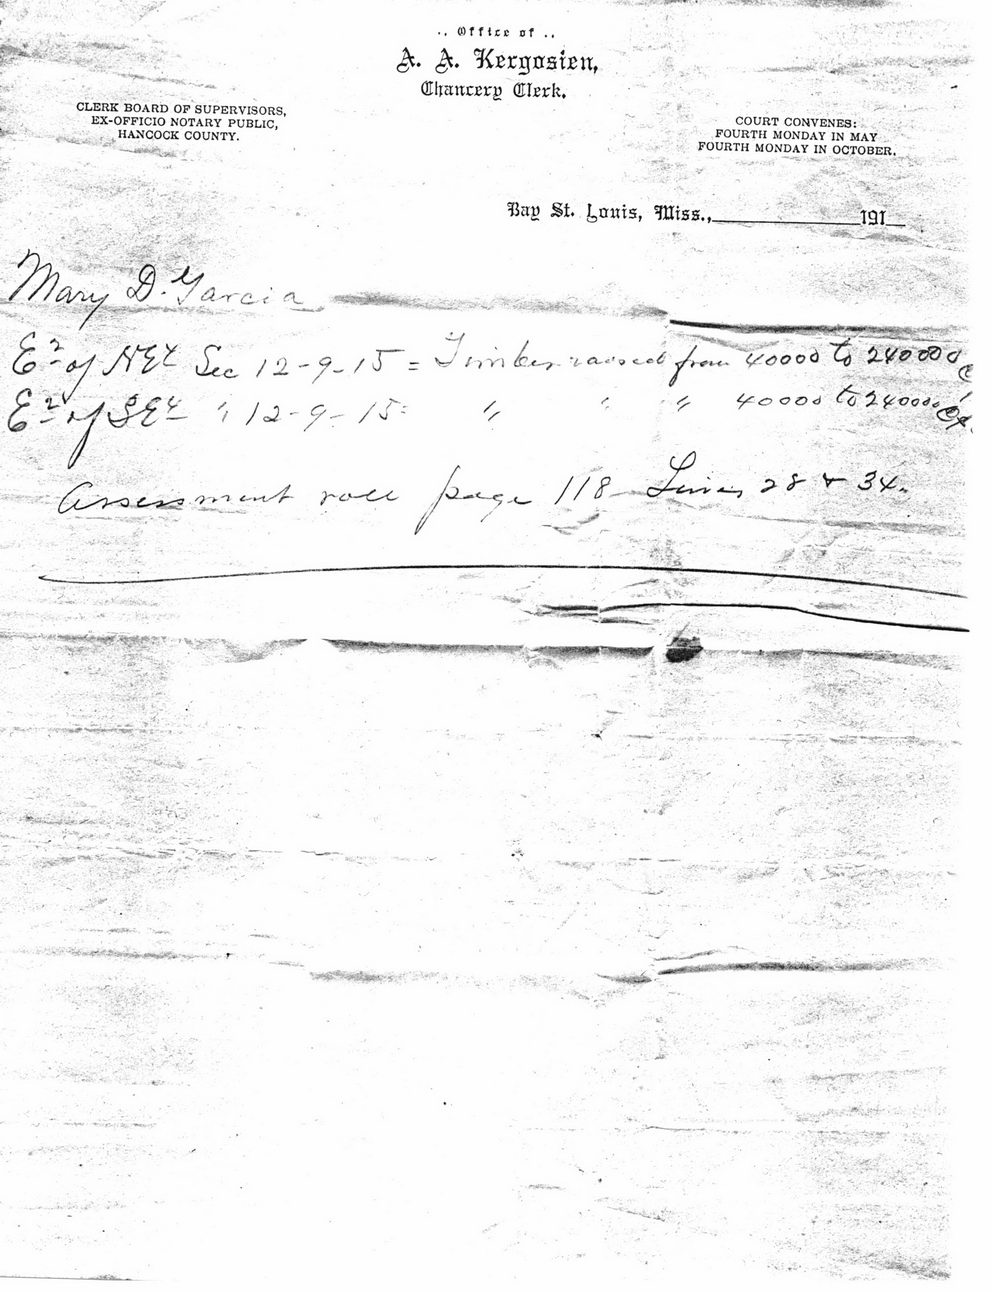 .. Office of ..
A. A. Kergosien,
Chancery Clerk.
CLERK BOARD OF SUPERVISORS,
EX-OFFICIO NOTARY PUBLIC,
HANCOCK COUNTY.
COURT CONVENES:
FOURTH MONDAY IN MAY
FOURTH MONDAY IN OCTOBER.
Bay St. Louis, Miss., 191
Mary D. Garcia
E 2 of NE4 Sec 12-9-15 = Timber raised from 40000 to 240000
E 2 of SE4 " 12-9-15 = " " " 40000 to 240000
Assessment roll page 118 Lines 28 & 34.